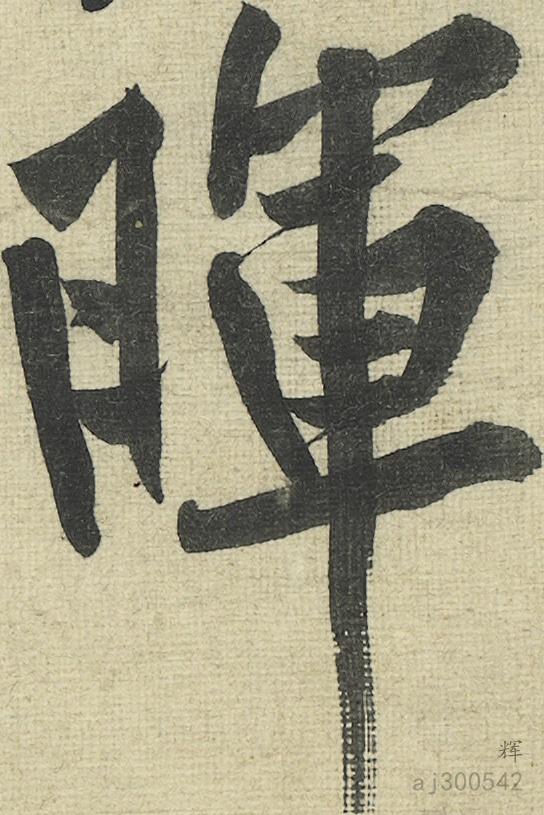 暉
辉
aj300542